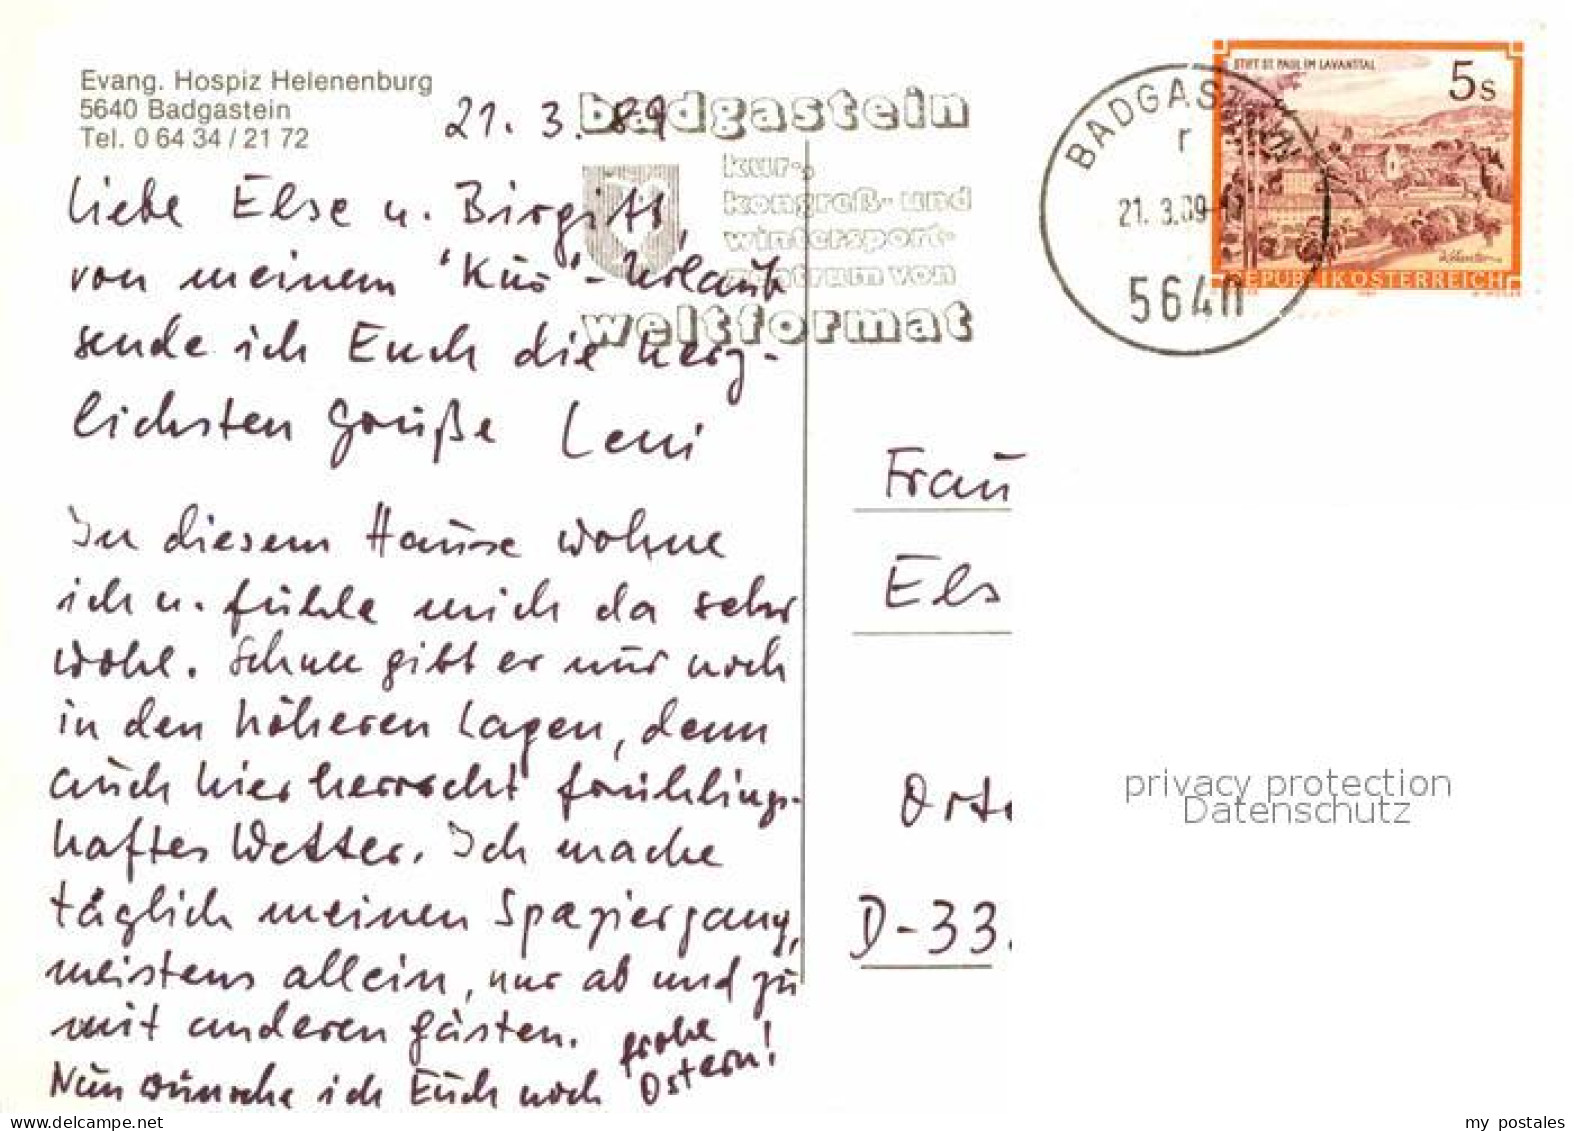 Evang. Hospiz Helenenburg
5640 Badgastein
Tel. 0 64 34 / 21 72
21. 3. 89
badgastein
kur-,
kongreß- und
wintersport-
zentrum von
weltformat
BADGASTEIN
r
21. 3.89
5640
STIFT ST. PAUL IM LAVANTTAL
5s
REPUBLIK ÖSTERREICH
Liebe Else u. Birgitt,
von meinem 'Kur'-Urlaub
sende ich Euch die herz-
lichsten Grüße Leni
In diesem Hause wohne
ich u. fühle mich da sehr
wohl. Schnee gibt es nur noch
in den höheren Lagen, denn
auch hier herrscht frühlings-
haftes Wetter. Ich mache
täglich meinen Spaziergang,
meistens allein, nur ab und zu
mit anderen Gästen.
Nun wünsche ich Euch noch frohe
Ostern!
Frau
Els
Orte
D-33
privacy protection
Datenschutz
my postales